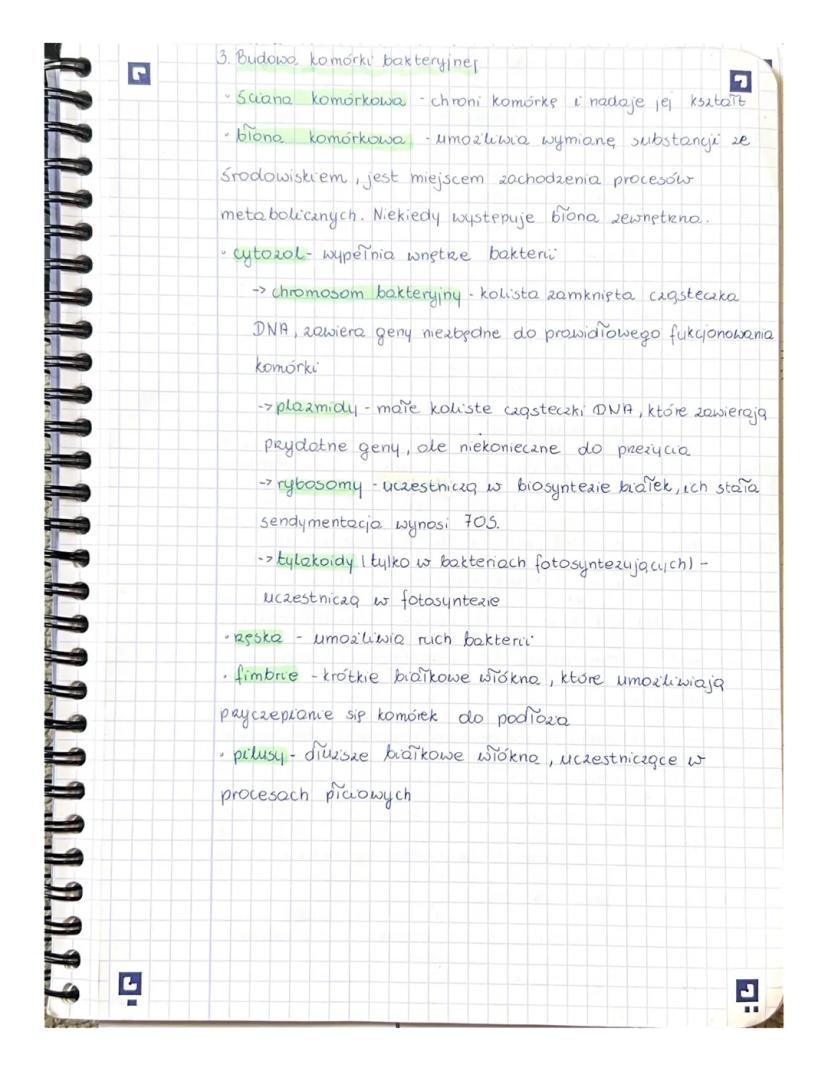 3. Budowa komórki bakteryjnej
· Ściana komórkowa - chroni komórkę i nadaje jej kształt
· błona komórkowa - umożliwia wymianę substancji ze
środowiskiem, jest miejscem zachodzenia procesów
metabolicznych. Niekiedy występuje błona zewnętrzna.
· cytozol - wypełnia wnętrze bakterii
-> chromosom bakteryjny - kolista zamknięta cząsteczka
DNA, zawiera geny niezbędne do prawidłowego fukcjonowania
komórki
-> plazmidy - małe koliste cząsteczki DNA, które zawierają
przydatne geny, ale niekonieczne do przeżycia
-> rybosomy - uczestniczą w biosyntezie białek, ich stała
sendymentacja wynosi 70S.
-> tylakoidy (tylko w bakteriach fotosyntezujących) -
uczestniczą w fotosyntezie
· rzęska - umożliwia ruch bakterii
· fimbrie - krótkie białkowe włókna, które umożliwiają
przyczepianie się komórek do podłoża
· pilusy - dłuższe białkowe włókna, uczestniczące w
procesach płciowych